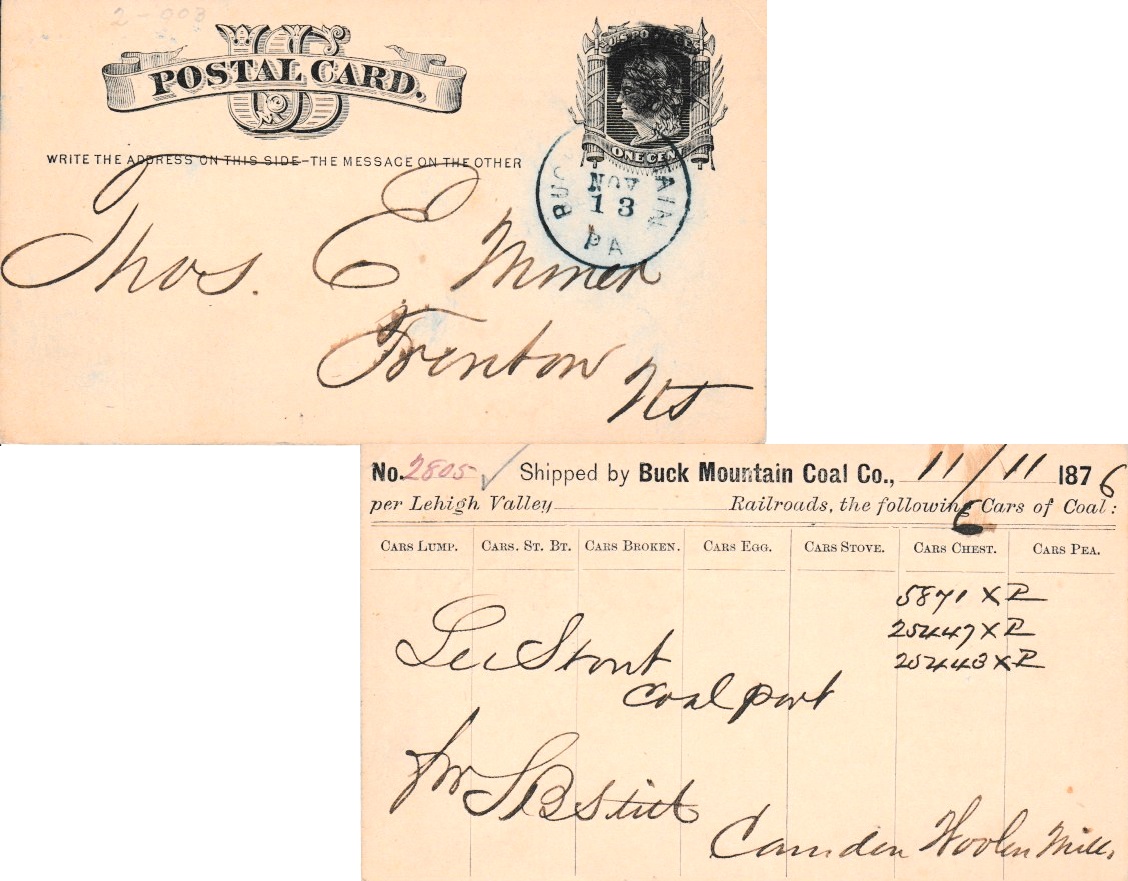 2-003
US
POSTAL CARD.
U.S. POSTAGE
ONE CENT
WRITE THE ADDRESS ON THIS SIDE–THE MESSAGE ON THE OTHER
NOV
13
PA
Thos. E Miner
Trenton NJ
No. 2805 Shipped by Buck Mountain Coal Co., 11/11 1876
per Lehigh Valley Railroads, the following 6 Cars of Coal:
CARS LUMP. CARS. ST. BT. CARS BROKEN. CARS EGG. CARS STOVE. CARS CHEST. CARS PEA.
5871 X P
25447 X P
25443 X P
Stout
Coalport
for S B Stitt
Camden Woolen Mills.